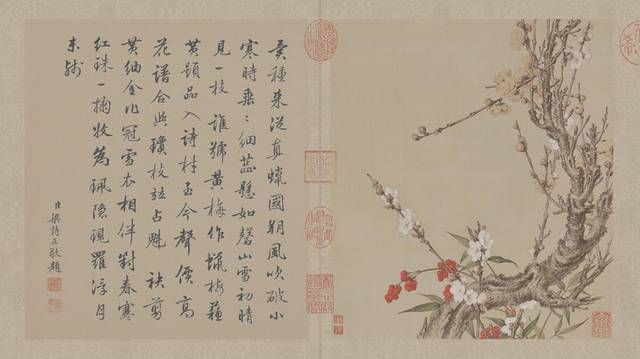 種來從真蠟國朔風吹破小
寒時垂〻細蕊懸如磬山雪初晴
見一枝誰號黃梅作蠟梅蘇
黃題品入詩材至今聲價高
花譜合與瓊枝並占魁 袂剪
黃紬金作冠雪衣相伴對春寒
紅珠一掬收為珮隱現羅浮月
未殘
臣梁詩正敬題